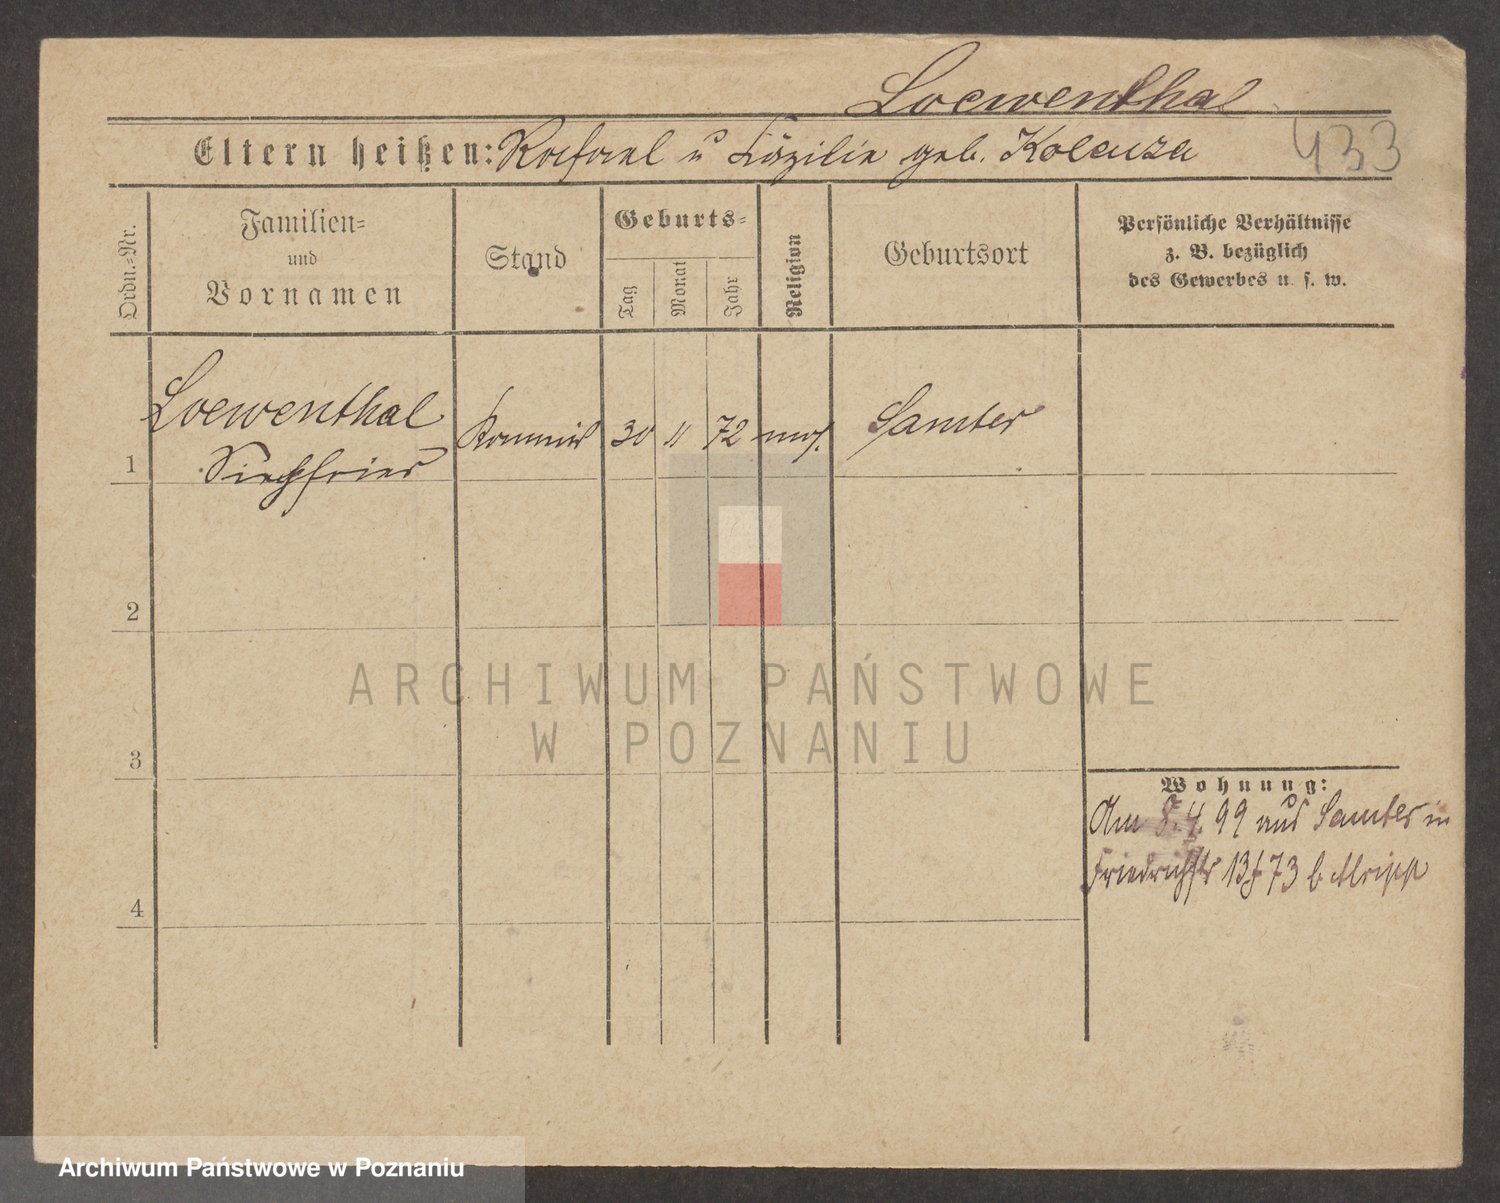 Loewenthal
433
Eltern heißen: Rafael u Cäzilie geb.
Ordn.-Nr.
Familien-
und
Vornamen
Stand
Geburts-
Tag
Monat
Jahr
Religion
Geburtsort
Persönliche Verhältnisse
z. B. bezüglich
des Gewerbes u. s. w.
1
Loewenthal
Siegfried
Kommis
30
11
72
mos.
Samter
2
3
4
ARCHIWUM PAŃSTWOWE
W POZNANIU
Wohnung:
Am 5. 4. 99 aus Samter in
Friedrichstr 13 73 b
Archiwum Państwowe w Poznaniu